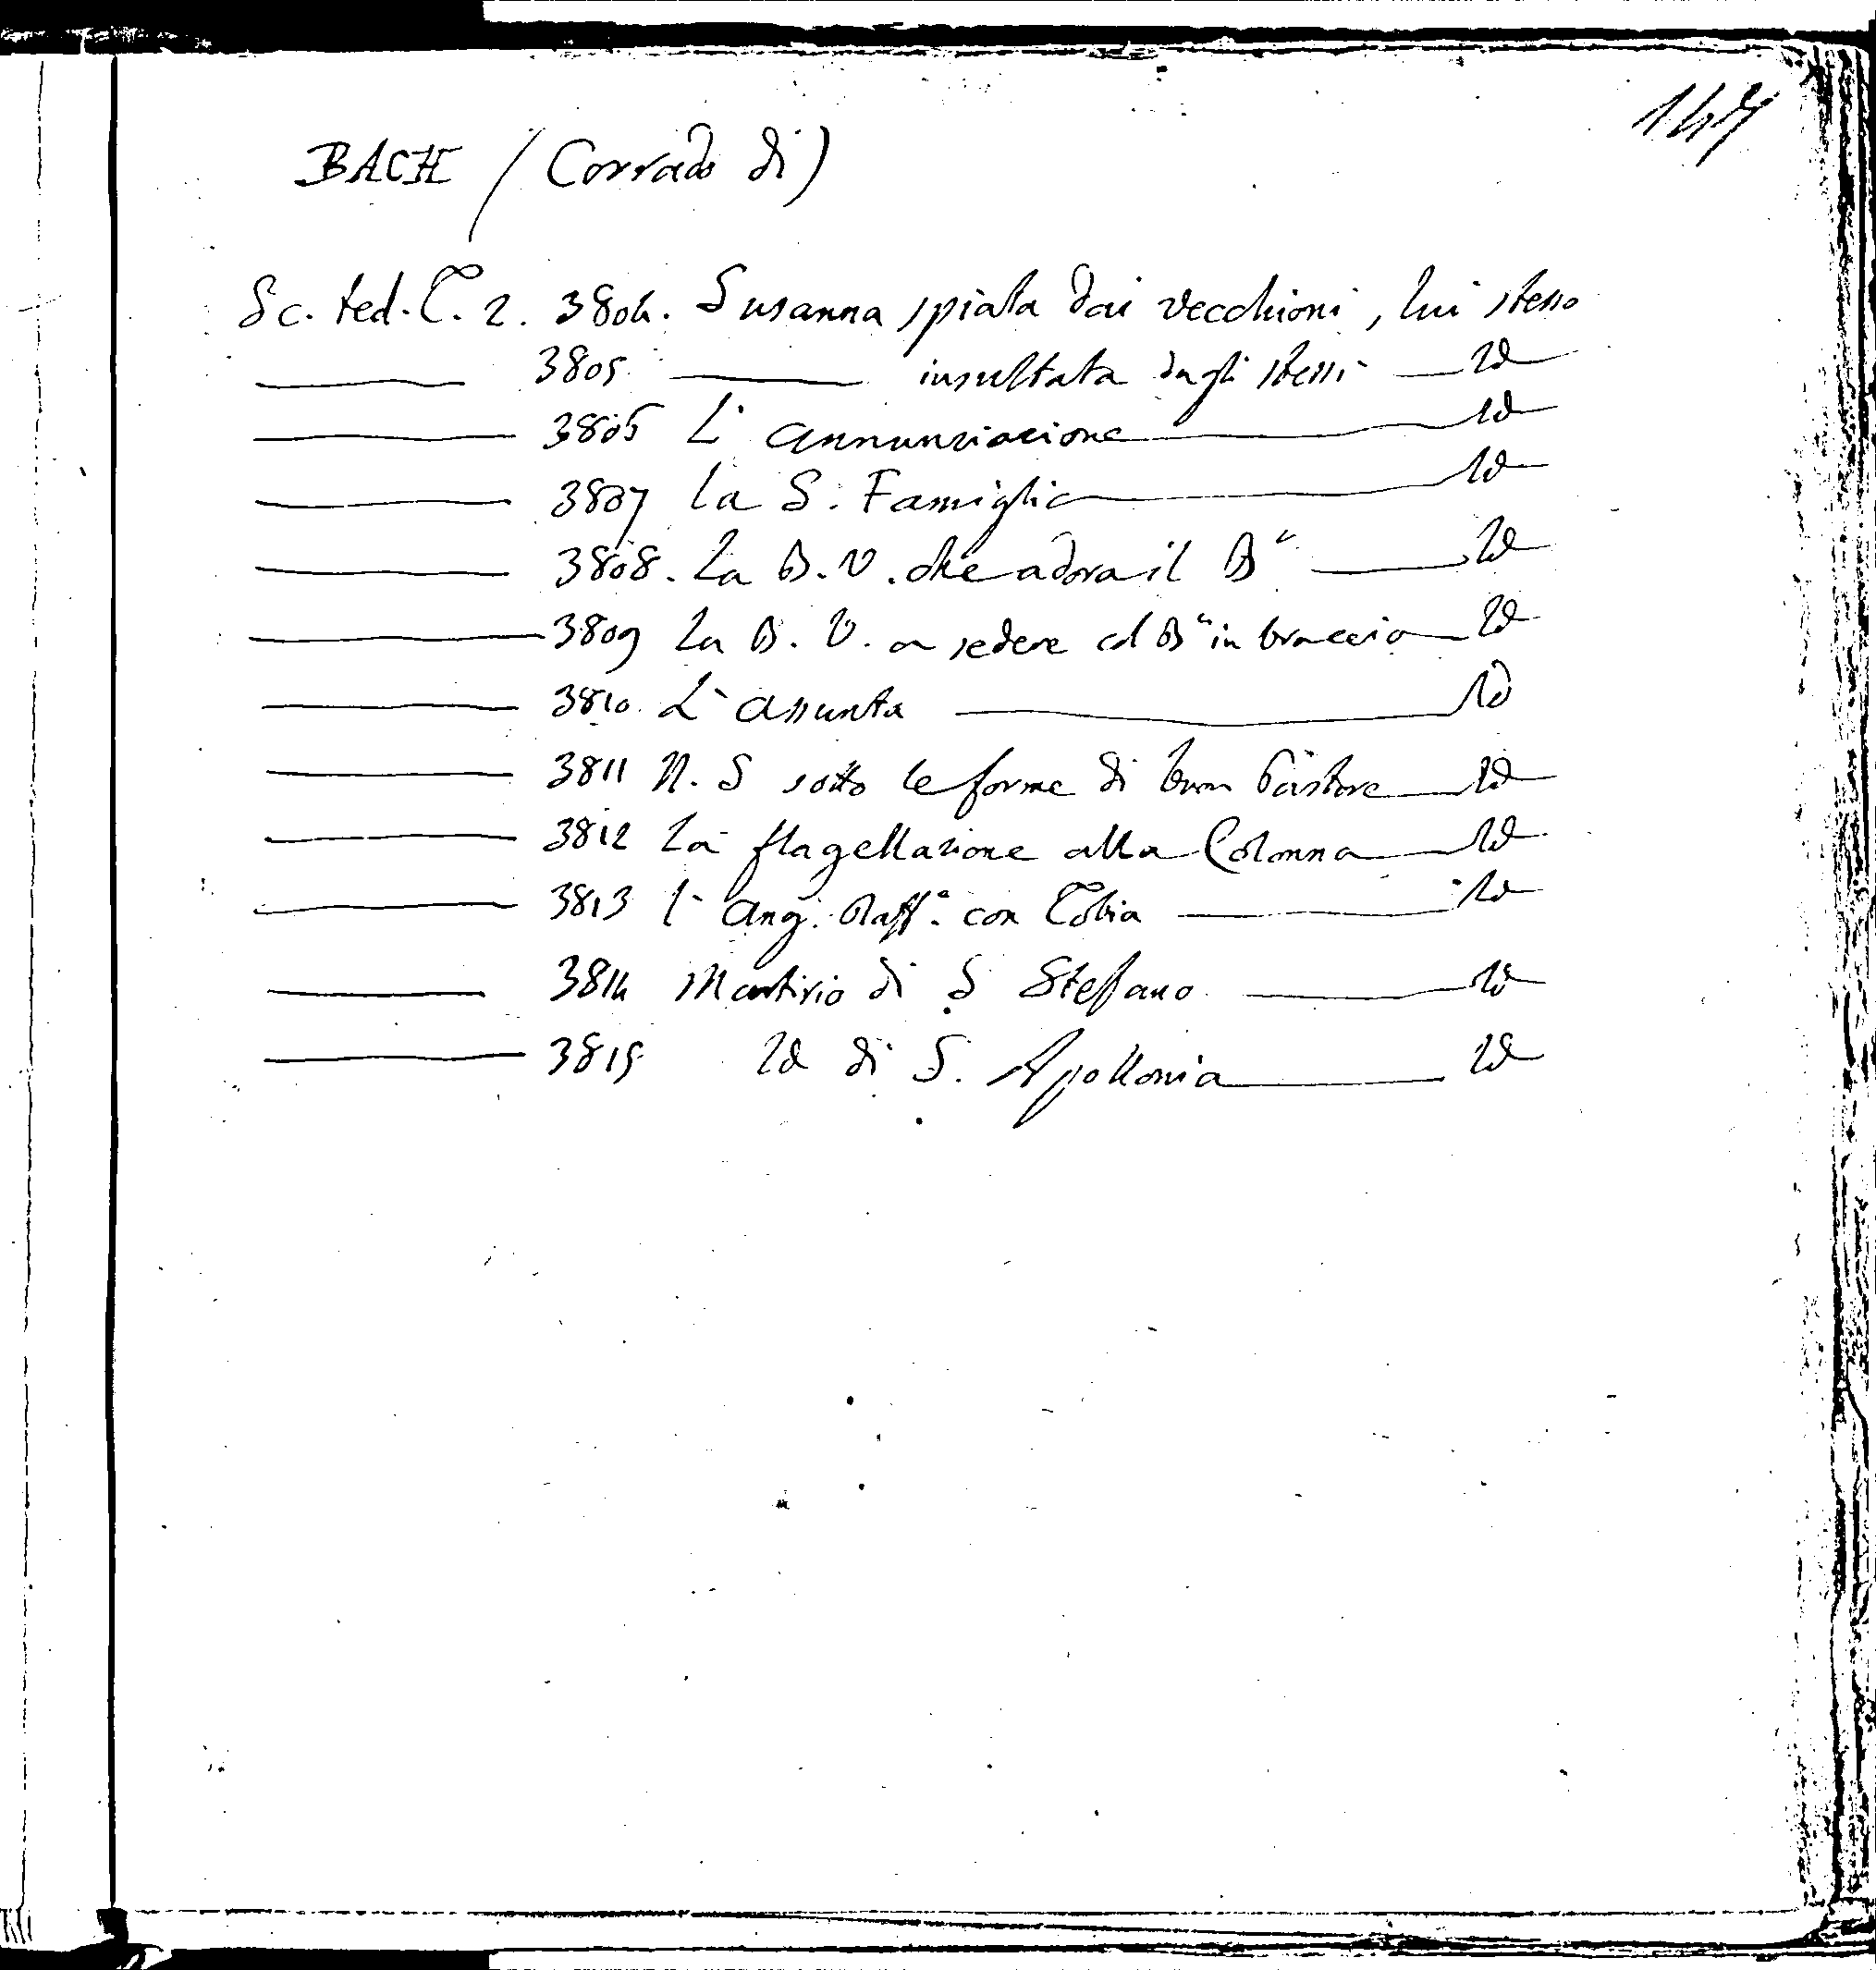 147
BACH (Corrado di)
Sc. ted. T. 2. 3804. Susanna spiata dai vecchioni, lui stesso
3805 insultata dagli stessi Id
3806 L'annunziazione Id
3807 La S. Famiglia Id
3808. La B. V. che adora il B° Id
3809 La B. V. a sedere col B° in braccio Id
3810. L'assunta Id
3811 N. S sotto le forme di buon Pastore Id
3812 La flagellazione alla Colonna Id
3813 l'Ang. Raff.e con Tobia Id
3814 Martirio di S. Steffano Id
3815 Id di S. Apollonia Id